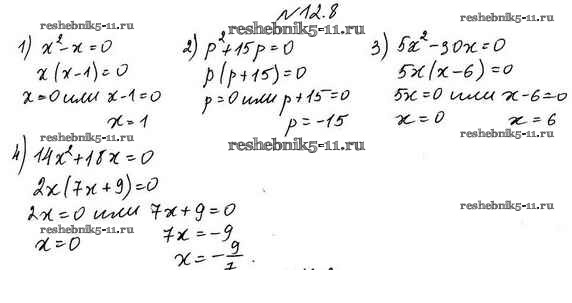 №12.8
reshebnik5-11.ru
reshebnik5-11.ru
1) x²-x=0
x(x-1)=0
x=0 или x-1=0
x=1
reshebnik5-11.ru
2) p²+15p=0
p(p+15)=0
p=0 или p+15=0
p=-15
reshebnik5-11.ru
3) 5x²-30x=0
5x(x-6)=0
5x=0 или x-6=0
x=0 x=6
reshebnik5-11.ru
reshebnik5-11.ru
4) 14x²+18x=0
2x(7x+9)=0
2x=0 или 7x+9=0
x=0 7x=-9
x=-9/7.
reshebnik5-11.ru
reshebnik5-11.ru